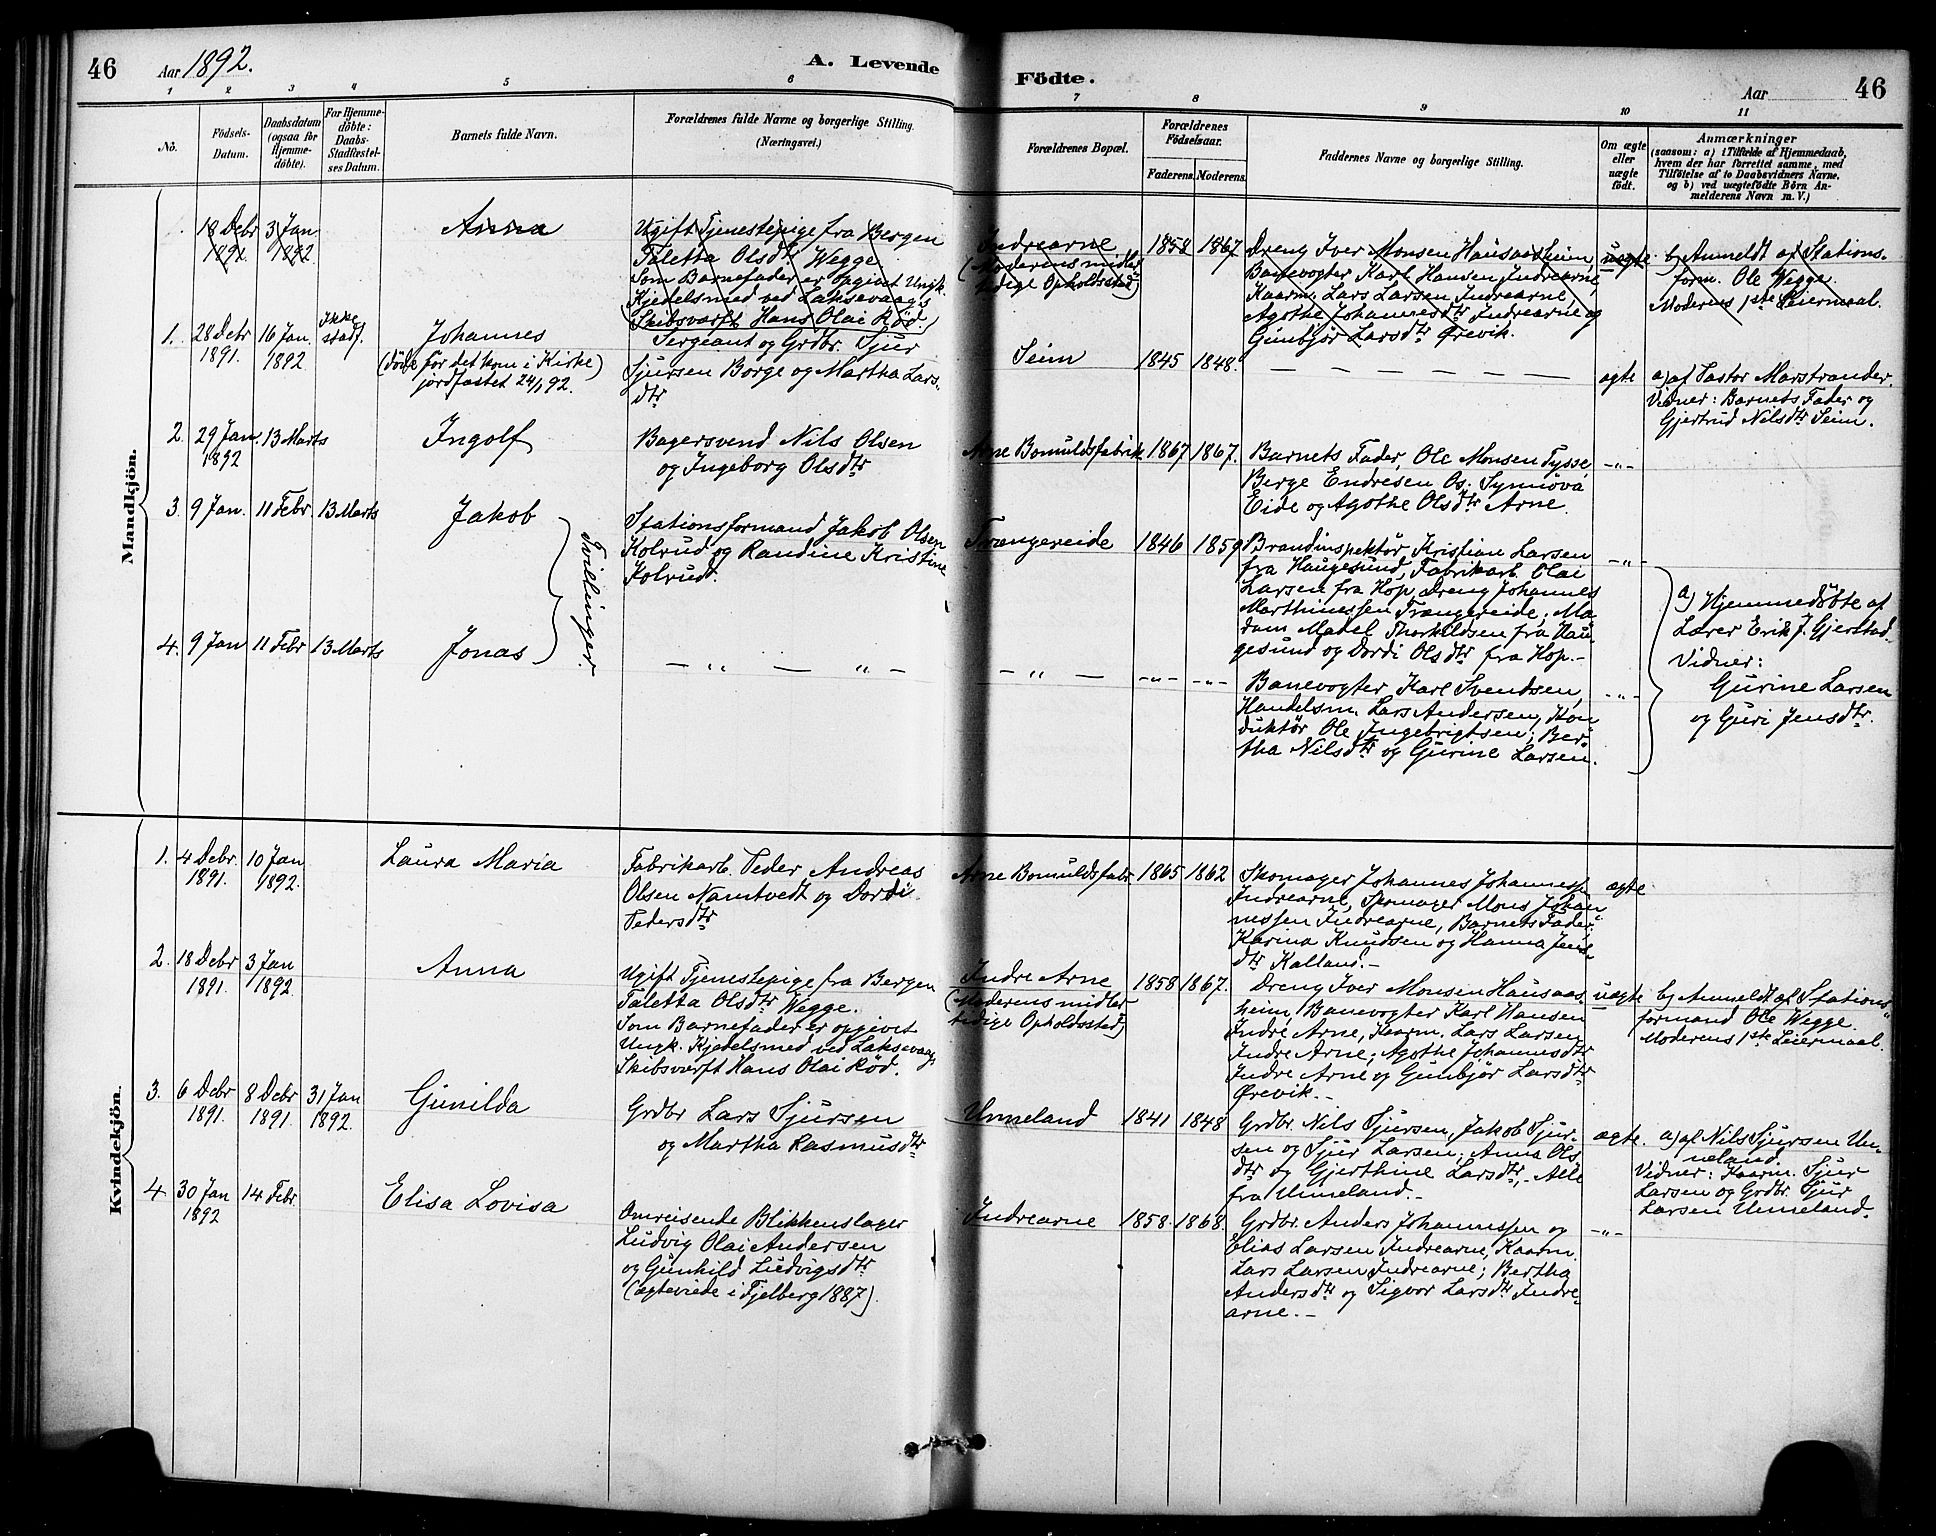 46 Aar 1892. A. Levende Födte. Aar 46
1 2 3 4 5 6 7 8 9 10 11
No.
Födsels-Datum.
Daabsdatum (ogsaa for Hjemmedöbte).
For Hjemmedöbte: Daabs-Stadfæstelses Datum.
Barnets fulde Navn.
Forældrenes fulde Navne og borgerlige Stilling.
(Næringsvei.)
Forældrenes Bopæl.
Forældrenes Födselsaar.
Faderens. Moderens.
Faddernes Navne og borgerlige Stilling.
Om ægte eller uægte födt.
Anmærkninger
(saasom: a) i Tilfælde af Hjemmedaab,
hvem der har forrettet samme, med
Tilföielse af to Daabsvidners Navne,
og b) ved uægtefödte Börn An-
melderens Navn m. V.)
Mandkjön.
18 Debr 1891. 3 Jan 1892
Anna
Ugift Tjenestepige fra Bergen
Taletta Olsdtr Wegge
Som Barnefader er opgivet Ungk.
Kjedelsmed ved Laksevaags
Skibsværft Hans Olai Röd.
Indrearne
(Moderens midler-
tidige Opholdssted)
1858 1867
Dreng Iver Monsen Hausaasheim,
Banevogter Karl Hansen Indrearne,
Kaarm. Lars Larsen Indrearne,
Agothe Johannesdtr Indrearne og
Gunbjör Larsdtr Ørevik.
uægte
b) Anmeldt af Stations-
form. Ole Wegge.
Moderens 1ste Leiermaal.
1. 28 Debr 1891. 16 Jan. 1892 Ikke stadf.
Johannes
(död før det kom i Kirke)
jordfæstet 24/1 92.
Sergeant og Grdbr. Sjur
Sjursen Borge og Martha Lars-
dtr
Seim 1845 1848.
— — — — — —
ægte
a) af Pastor Marstrander.
Vidner: Barnets Fader og
Gjertrud Nilsdtr Seim.
2. 29 Jan. 1892 13 Marts
Ingolf
Bagersvend Nils Olsen
og Ingeborg Olsdtr
Arne Bomuldsfabrik 1867 1867.
Barnets Fader, Ole Monsen Tysse,
Berge Endresen Os; Synnøva
Eide og Agothe Olsdtr Arne.
—"—
3. 9 Jan. 11 Febr. 13 Marts
Jakob
Tvillinger.
Stationsformand Jakob Olsen
Kolrud og Randine Kristine
Kolrud.
Trængereide 1846 1859
Brandinspektör Kristian Larsen
fra Haugesund, Fabrikarb. Olai
Larsen fra Hop, Dreng Johannes
Marthinessen Trængereide; Ma-
dam Madel Thorkildsen fra Hau-
gesund og Dordi Olsdtr fra Hop.—
—"—
a) Hjemmedöbte af
Lærer Erik J. Gjerstad.
Vidner:
Gurine Larsen
og Guri Jensdtr.
4. 9 Jan 11 Febr 13 Marts
Jonas
— " — " —
— " — —"— —"—
Banevogter Karl Svendsen,
Handelsm. Lars Andersen, Kon-
duktör Ole Ingebrigtsen; Ber-
tha Nilsdtr og Gurine Larsen.
—"—
Kvindekjön.
1. 4 Debr. 1891. 10 Jan 1892.
Laura Maria
Fabrikarb. Peder Andreas
Olsen Namtvedt og Dordi
Pedersdtr
Arne Bomuldsfabr. 1865 1862
Skomager Johannes Johannessen
Indrearne, Skomager Mons Johan-
nessen Indrearne, Barnets Fader;
Karina Knudsen og Hanna Jens-
dtr Kalland.—
ægte
2. 18 Debr 1891. 3 Jan 1892.
Anna
Ugift Tjenestepige fra Bergen
Taletta Olsdtr Wegge.
Som Barnefader er opgivet
Ungk. Kjedelsmed ved Laksevaags
Skibsværft Hans Olai Röd.
Indre Arne
(Moderens midler-
tidige Opholdssted)
1858 1867.
Dreng Iver Monsen Hausaas-
heim, Banevogter Karl Hansen
Indre Arne, Kaarm. Lars Larsen
Indre Arne; Agothe Johannesdtr
Indre Arne og Gunbjör Larsdtr
Ørevik.—
uægte
b) Anmeldt af Stations-
formand Ole Wegge.
Moderens 1ste Leiermaal.
3. 6 Debr 1891. 8 Debr 1891. 31 Jan 1892.
Gunilda
Grdbr Lars Sjursen
og Martha Rasmusdtr
Unneland 1841 1848
Grdbr. Nils Sjursen, Jakob Sjur-
sen og Sjur Larsen; Anna Ols-
dtr og Gjerthine Larsdtr,— Alle
fra Unneland.—
ægte.
a) af Nils Sjursen Un-
neland.
Vidner: Kaarm. Sjur
Larsen og Grdbr. Sjur
Larsen Unneland.
4. 30 Jan 1892 14 Febr.
Elisa Lovisa
Omreisende Blikkenslager
Ludvig Olai Andersen
og Gunhild Ludvigsdtr
(ægteviede i Fjelberg 1887).
Indrearne 1858. 1868.
Grdbr. Anders Johannessen og
Elias Larsen Indrearne, Kaarm.
Lars Larsen Indrearne; Bertha
Andersdtr og Sigvor Larsdtr Indre-
arne.—
—"—